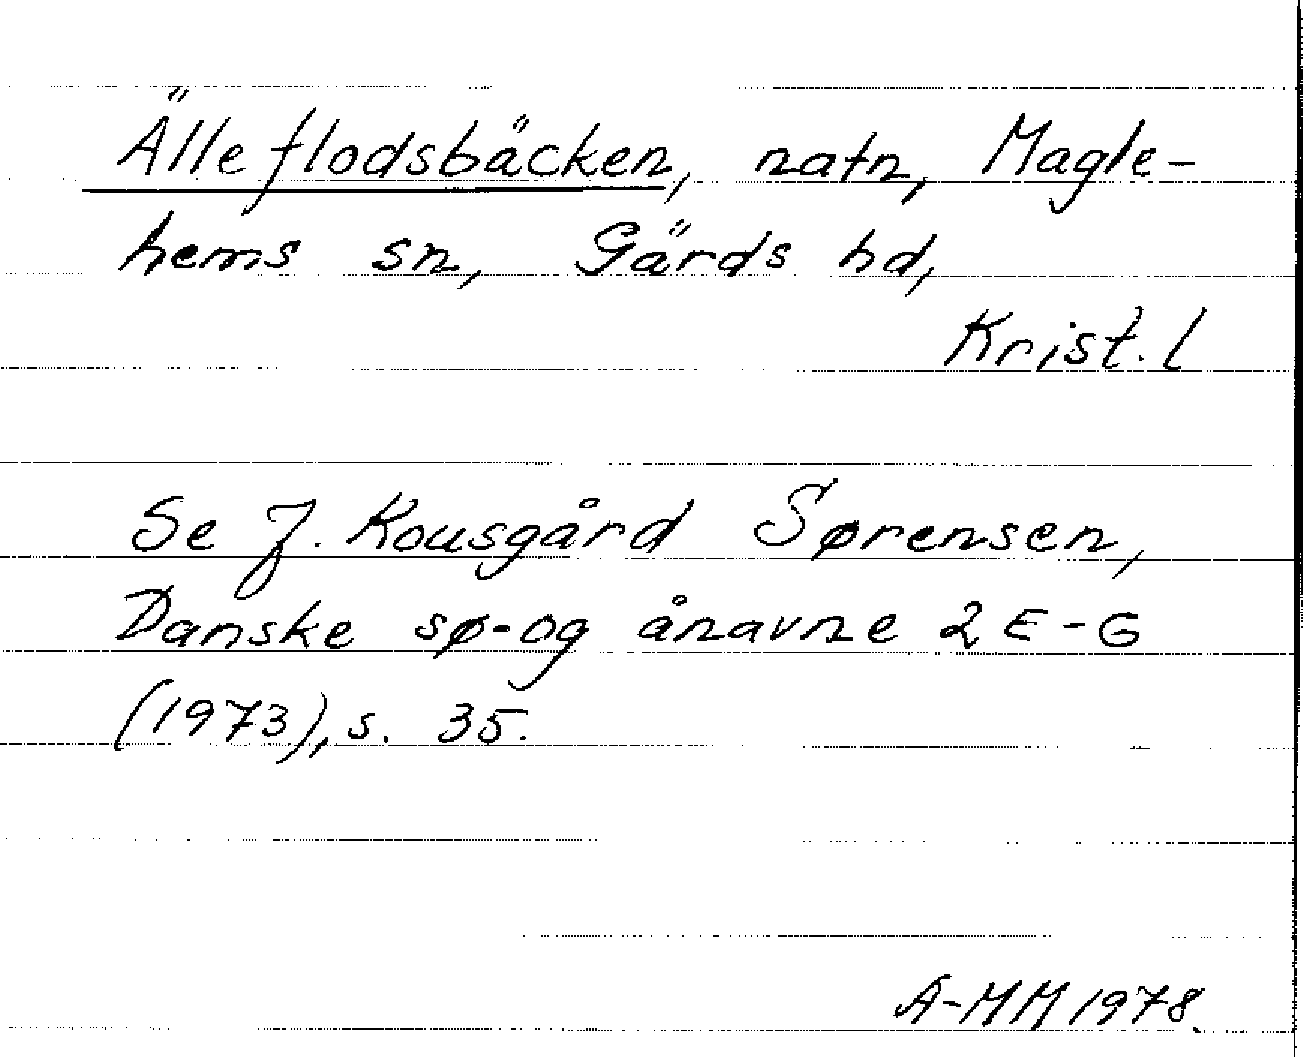 Älleflodsbäcken, natn, Magle-
hems sn, Gärds hd,
Krist. l
Se J. Kousgård Sørensen,
Danske sø- og ånavne 2 E-G
(1973), s. 35.
A-MM 1978.